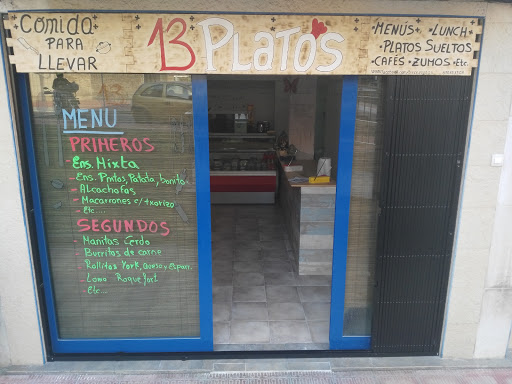 Comida
PARA
LLEVAR
13 PLATOS
MENUS · LUNCH
· PLATOS SUELTOS
· CAFÉS · ZUMOS · Etc
MENU
PRIMEROS
- Ens. Mixta
- Ens. Pintos, Patata, bonito
- Alcachofas
- Macarrones c/ txorizo
- Etc....
SEGUNDOS
- Manitas Cerdo
- Burritos de carne
- Rollitos York, Queso y Esparr.
- Lomo Roquefort
- Etc...